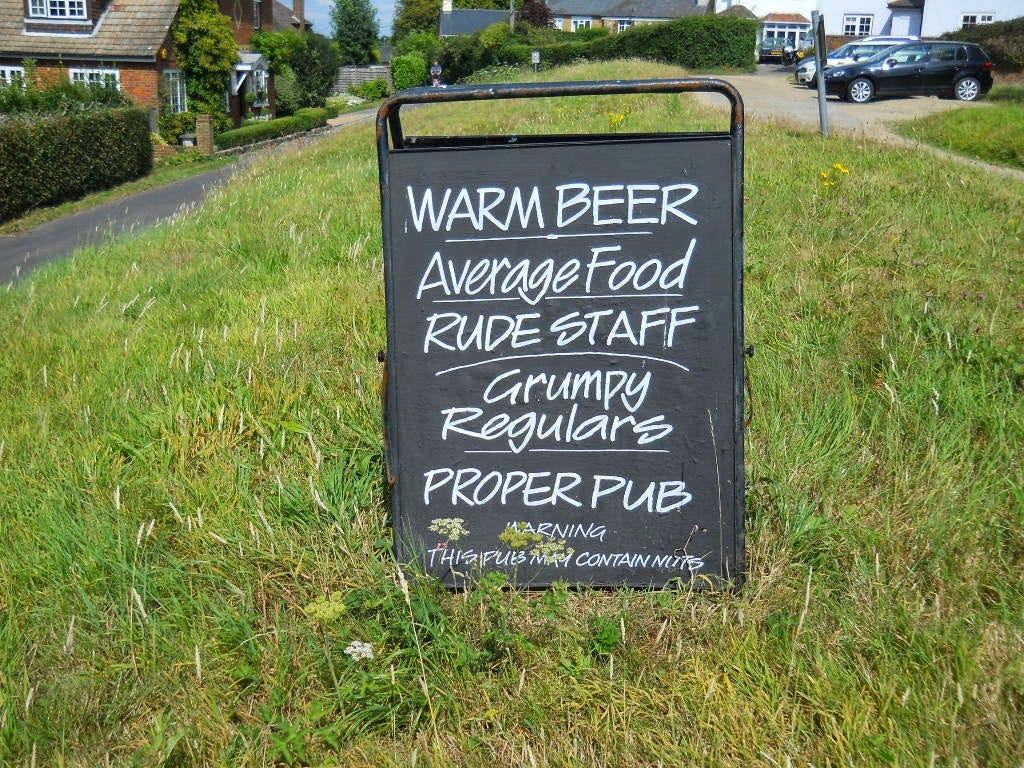 WARM BEER
Average Food
RUDE STAFF
Grumpy
Regulars
PROPER PUB
WARNING
THIS PUB MAY CONTAIN NUTS